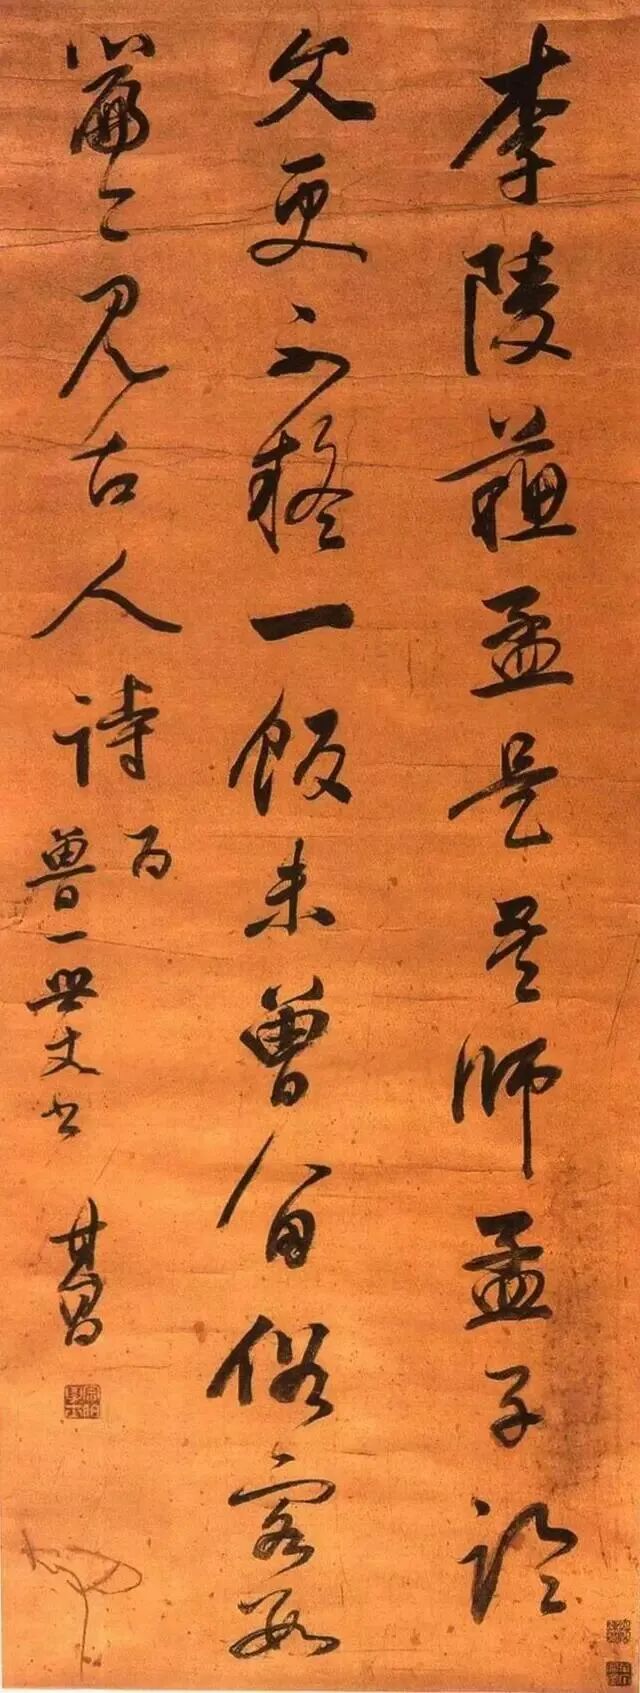 李陵蘓孟是吾師孟子論
文更不疑一飯未曾留俗客數
篇今見古人詩
為
曾一世丈書 其昌